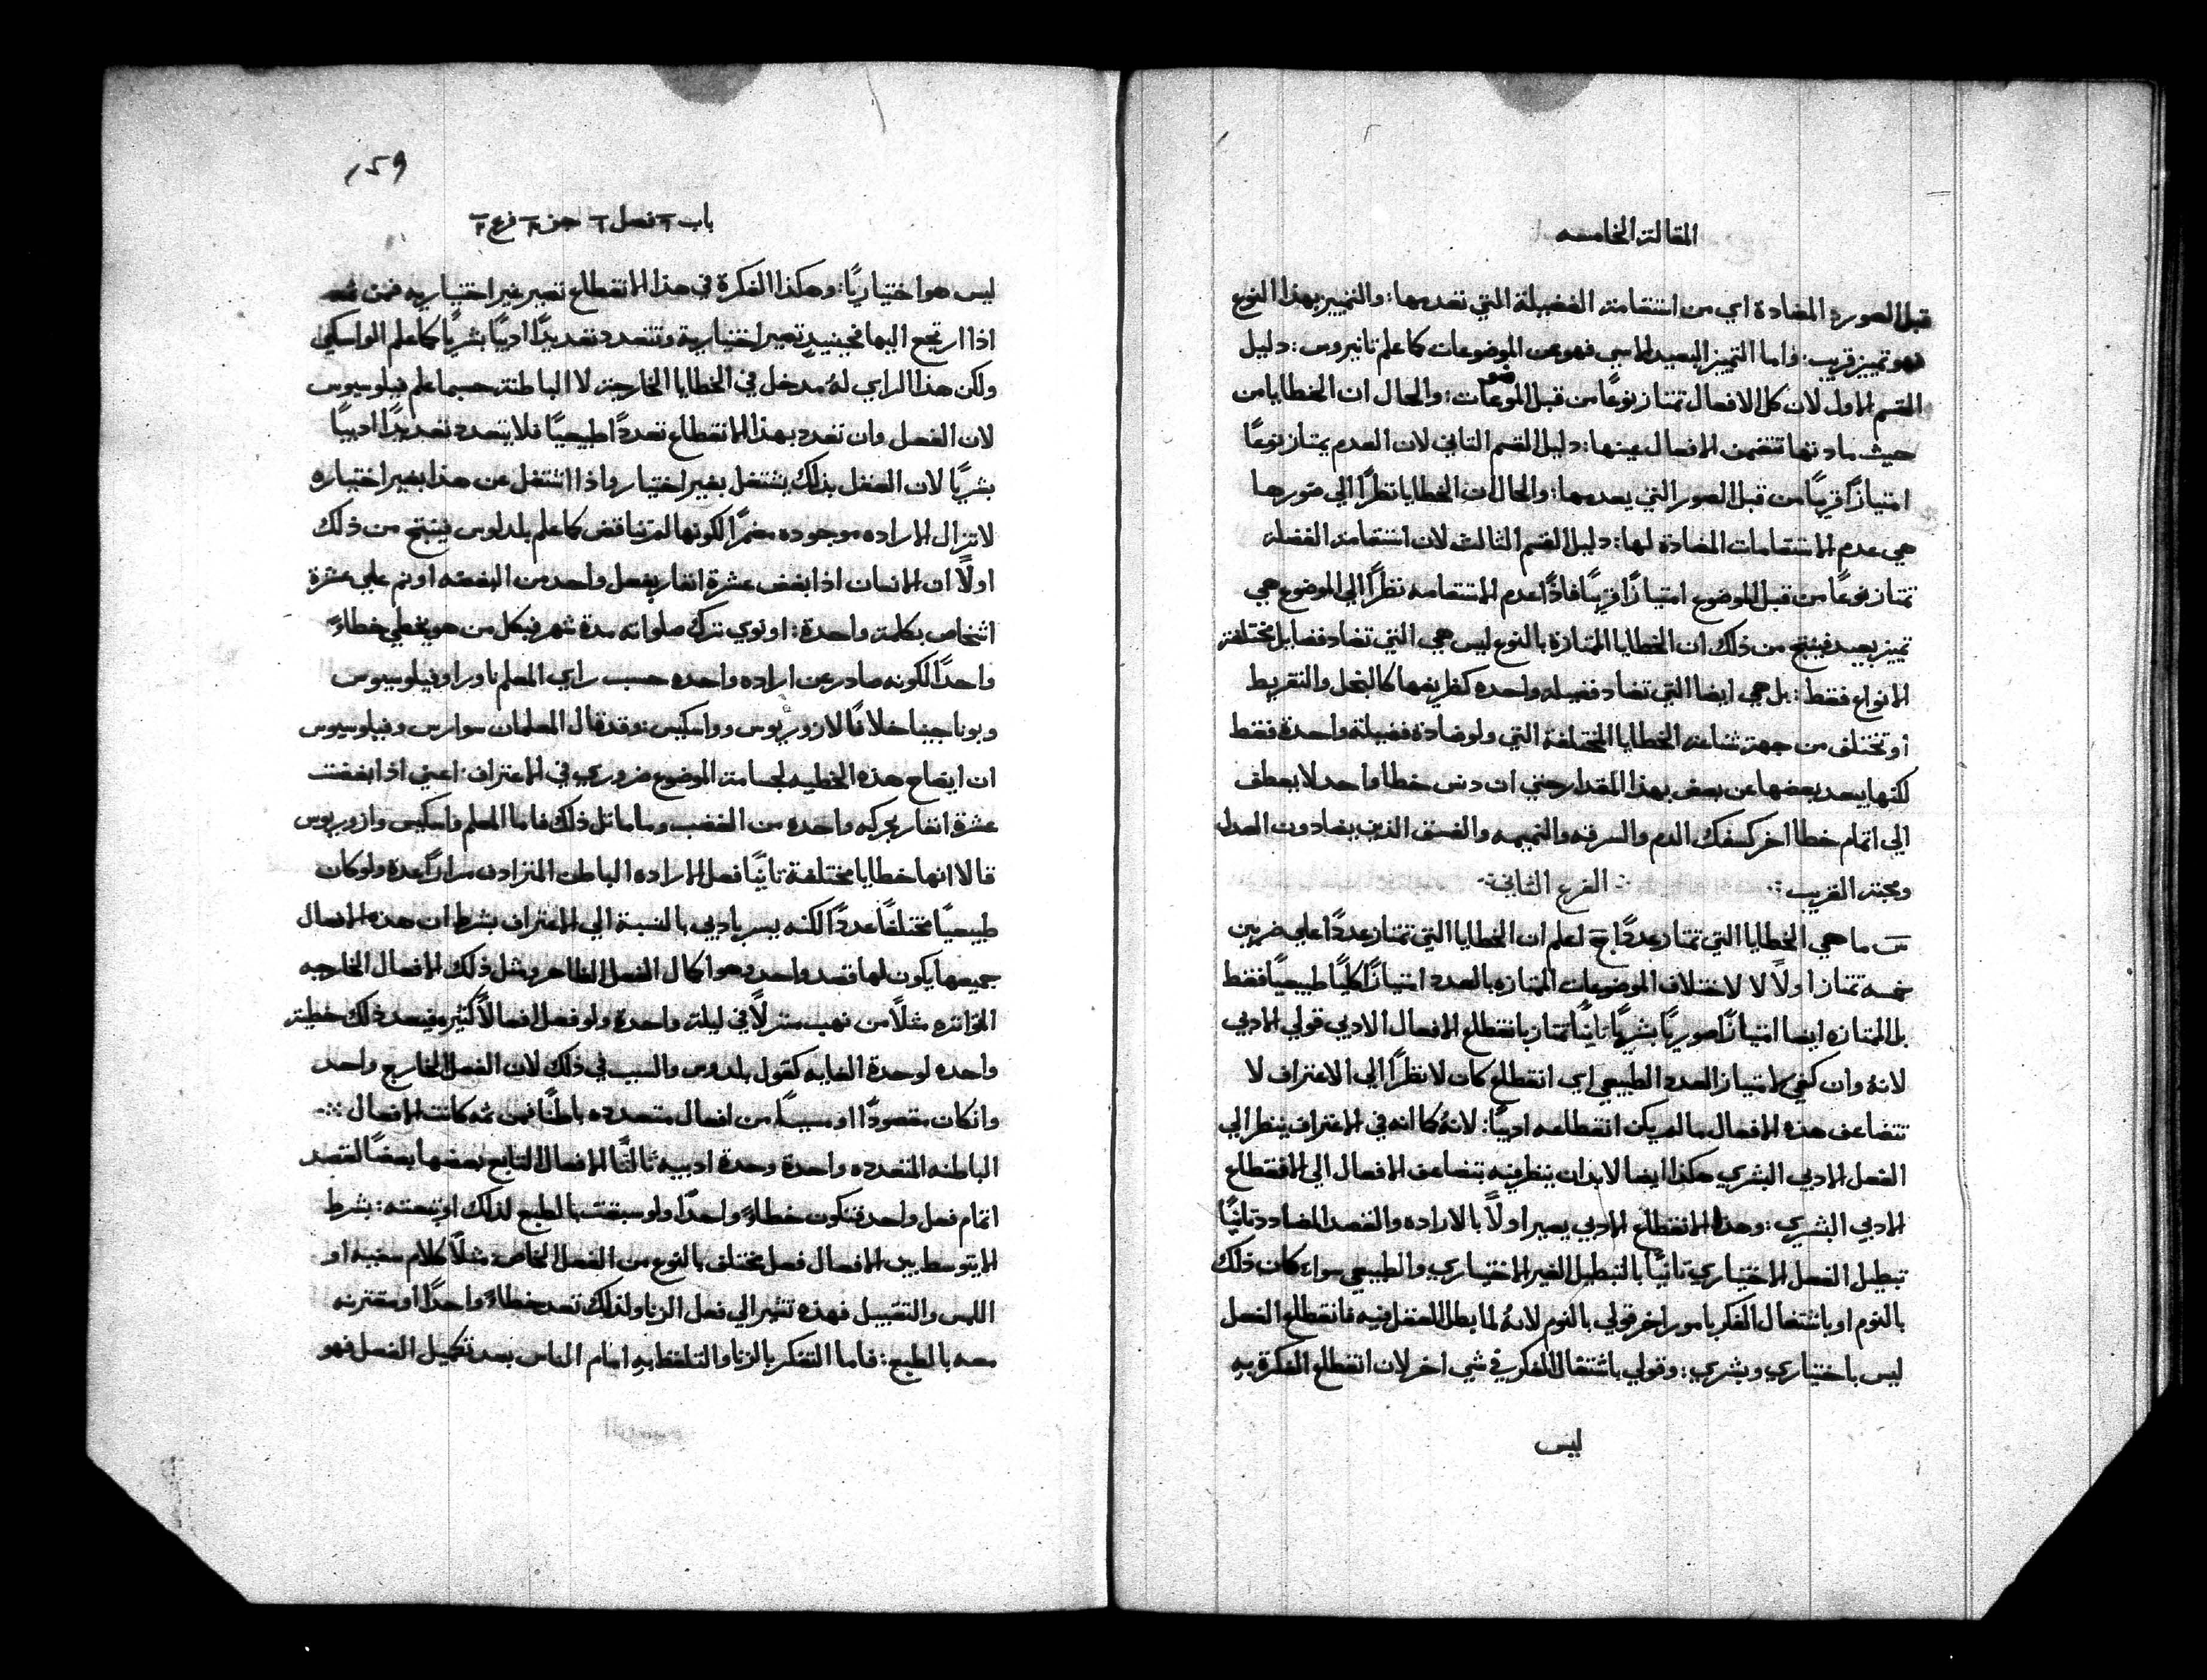 المقالة الخامسه
قبل الصورة المضادة اي من استقامة الفضيلة التي تعدمها: والتمييز بهذا النوع
هو تمييز قريب: فاما التمييز البعيد الاسي فهو من الموضوعات كما علم تانيروس: دليل
القسم الاول لان كل الافعال تمتاز نوعًا من قبل الموضوعات: والحال ان الخطايا من
حيث مادتها تتضمن الافعال عينها: دليل القسم الثاني لان العدم يمتاز نوعًا
امتيازًا قريبًا من قبل الصور التي يعدمها: والحال ان الخطايا نظرًا الي صورها
هي عدم الاستقامات المضادة لها: دليل القسم الثالث لان استقامة الفضايل
تمتاز نوعًا من قبل الموضوع امتيازًا قريبًا فاذًا عدم الاستقامه نظرًا الي الموضوع هي
تمييز بعيد فينتج من ذلك ان الخطايا الممتازة بالنوع ليس هي التي تضاد فضايل مختلفة
الانواع فقط: بل هي ايضا التي تضاد فضيله واحده كطرفيها كالبخل والتفريط
او تختلف من جهة شناعة الخطايا المختلفة التي ولو ضادة فضيلة واحدة فقط
لكنها يبعد بعضها عن بعض بهذا المقدار حتي ان دنس خطا واحد لا يعطف
الي اتمام خطا اخر كسفك الدم والسرقه والنميمه والفسق الذين يضادون العدل
ومحبة القريب : الفرع الثاني :
س ما هي الخطايا التي تمتاز عددًا ج اعلم ان الخطايا التي تمتاز عددًا علي ضربين
خمسه تمتاز اولًا لا لاختلاف الموضوعات الممتازه بالعدد امتيازًا كليًا طبيعيًا فقط
بل الممتازه ايضا امتيازًا صوريًا بشريًا ثانيًا تمتاز بانقطاع الافعال الادبي قولي الادبي
لانهُ وان كفي لامتياز العدد الطبيعي اي انقطاع كان لا نظرًا الي الاعتراف لا
تتضاعف هذه الافعال ما لم يكن انقطاعه ادبيًا: لانهُ كما انه في الاعتراف ينظر الي
الفعل الادبي البشري هكذا ايضا لابد ان ينظر فيه بتضاعف الافعال الي الانقطاع
الادبي البشري: وهذا الانقطاع الادبي يصير اولًا بالاراده والقصد المضادد ثانيًا
تبطيل الفعل الاختياري ثانيًا بالتبطيل الغير الاختياري والطبيعي سواء كان ذلك
بالنوم او باشتغال الفكر بامور اخر قولي بالنوم لانهُ لما يبطل العقل فيه فانقطاع الفعل
ليس باختياري وبشري: وقولي باشتغال الفكر في شي اخر لان انقطاع الفكرة به
ليس
159
باب فصل جز فرع
ليس هو اختياريًا: وهكذا الفكرة في هذا الانقطاع تصير غير اختياريه فمن ثمه
اذا ارتجع اليها فحينيدٍ تصير اختيارية وتتعدد تعديدًا ادبيًا بشريًا كما علم الواسكي
ولكن هذا الراي لهُ مدخل في الخطايا الخارجة لا الباطنة حسبما علم فيلوسيوس
لان الفعل وان تعدد بهذا الانقطاع تعددًا طبيعيًا فلا يتعدد تعديدًا ادبيًا
بشريًا لان العقل بذلك يشتغل بغير اختيار واذا اشتغل عن هذا بغير اختياره
لا تزال الاراده موجوده مضمرًا لكونها لم تناقض كما علم بلدلوس فينتج من ذلك
اولًا ان الانسان اذا بغض عشرة انفار بفعل واحد من البغضه او نم علي عشرة
اشخاص بكلمة واحدة: او نوي ترك صلواته مدة شهر فبكل من هو يخطي خطاءً
واحدًا لكونه صادر عن اراده واحده حسب راي المعلم ناورا وفيلوسيوس
وبوناجينا خلافًا لازوريوس وواسكيس: وقد قال المعلمان سوارس وفيلوسيوس
ان ايضاح هذه الخطيه لجسامة الموضوع ضروري في الاعتراف: اعني اذا بغضت
عشرة انفار بحركه واحده من الغضب وما ماثل ذلك فاما المعلم واسكيس وازوريوس
قالا انها خطايا مختلفة ثانيًا فعل الاراده الباطن المترادف مرارًا عدة ولو كان
طبيعيًا مختلفًا عددًا لكنه يسر باديي بالنسبة الي الاعتراف بشرط ان هذه الافعال
جميعها يكون لها قصد واحد وهو اكمال الفعل الظاهر ومثل ذلك الافعال الخارجه
المواتره مثلًا من نهب منزلًا في ليلة واحدة ولو فعل افعالًا كثيره فيعد ذلك خطية
واحده لوحدة الغايه كقول بلدوس والسبب في ذلك لان الفعل الخارج واحد
وانكان مقصودًا او مسببًا من افعال متعدده باطنًا فمن ثمه كانت الافعال
الباطنه المتعدده واحدة وحدة ادبيه ثالثًا الافعال التابع بعضها بعضًا لقصد
اتمام فعل واحد فتكون خطاءً واحدًا ولو سبقت بالطبع لذلك او تبعته: بشرط
الا يتوسط بين الافعال فعل مختلف بالنوع من الفعل الخاص مثلًا كلام سفيه او
اللمس والتقبيل فهذه تشير الي فعل الزنا ولذلك تعد خطاءً واحدًا او مقترنه
معه بالطبع: فاما التفكر بالزنا والتلفظ به امام الناس بعد تكميل الفعل فهو